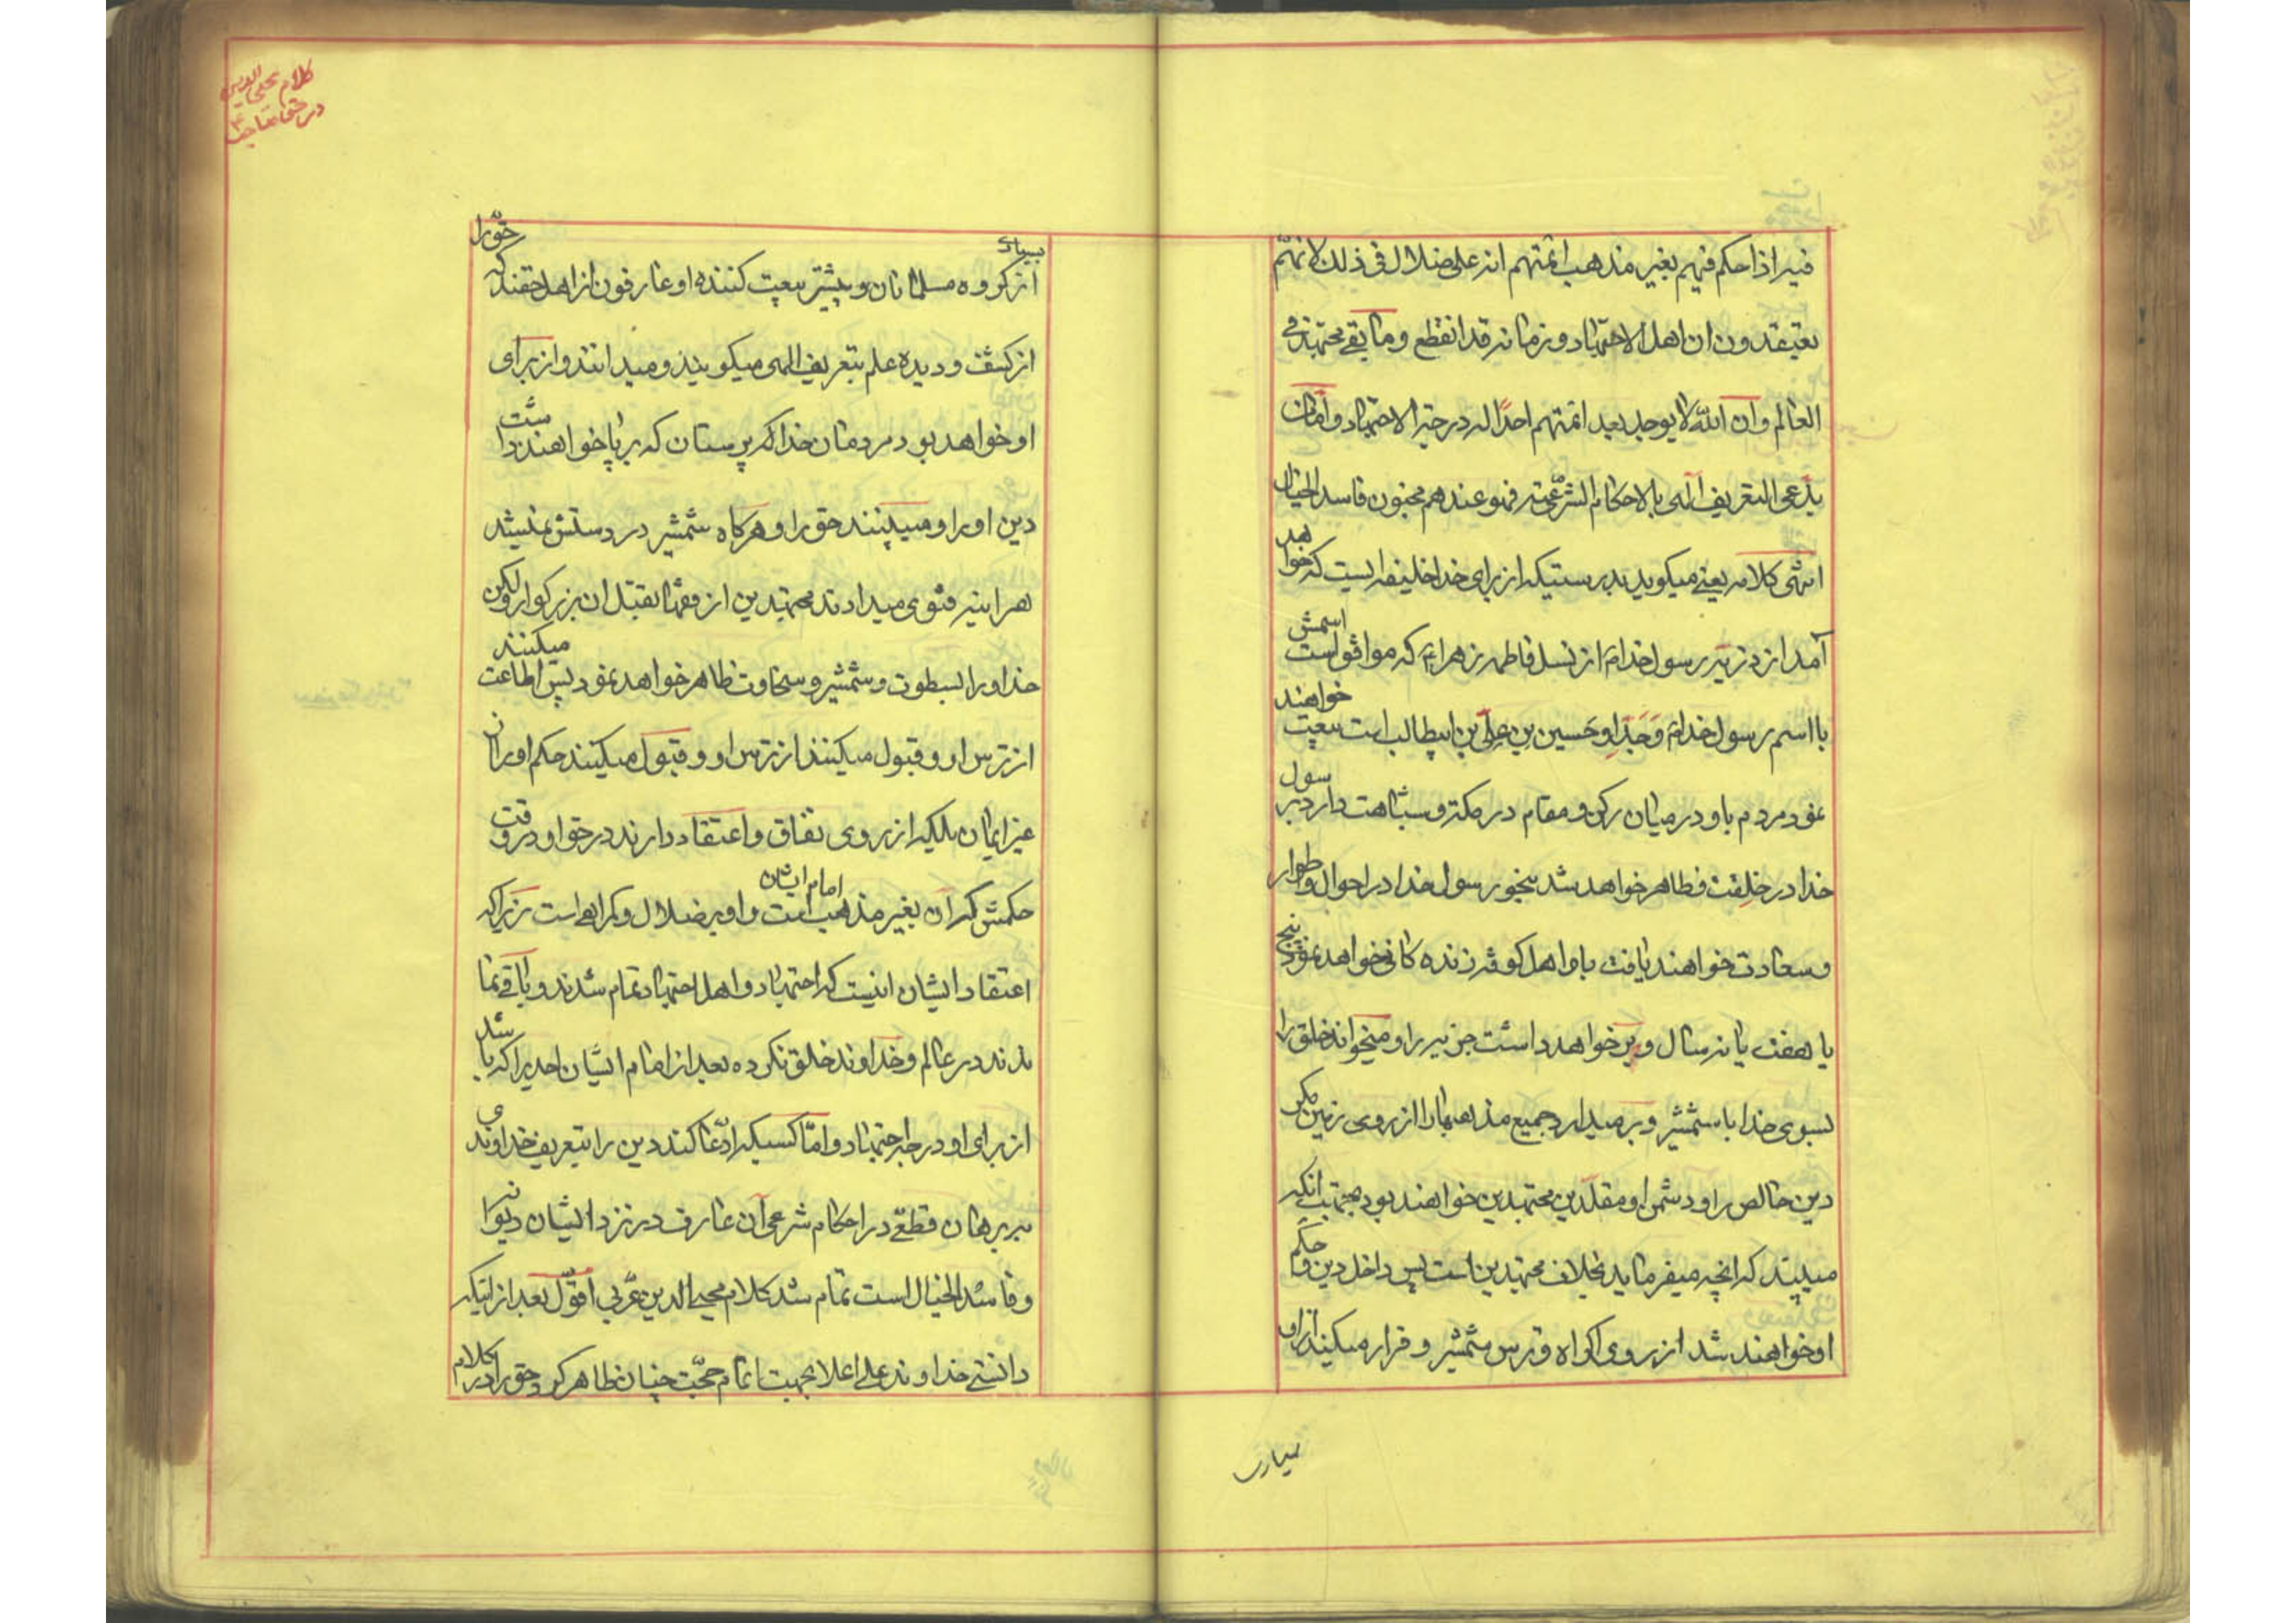 فیه اذا حکم فیهم بغیر مذهب ائمتهم انه علی ضلال فی ذلک لانهم
یعتقدون ان اهل الاجتهاد و زمانه قد انقطع و ما بقی مجتهد فی
العالم و ان الله لا یوجد بعد ائمتهم احدا له درجة الاجتهاد و اما من
یدعی التعریف الهی بالاحکام الشرعیة فهو عندهم مجنون فاسد الخیال
انتهی کلامه یعنی میکوید بدرستیکه از برای خدا خلیفه ایست که خواهد
آمد از ذریه رسول خدا از نسل فاطمه زهراء که موافق است اسمش
با اسم رسول خدا و جد او حسین بن علی بن ابیطالب است بیعت خواهند
نمود مردم باو در میان رکن و مقام در مکه و شباهت دارد برسول
خدا در خلقت و ظاهر خواهد شد بخور رسول خدا در احوال و اطوار
و سعادت خواهند یافت باو اهل کوفه زنده کانی خواهد نمود پنج
یا هفت یا نه سال و بر خواهد داشت جزیه را و میخواند خلق را
بسوی خدا با شمشیر و بر میدارد جمیع مذهبها را از روی زمین مکر
دین خالص را و دشمن او مقلدین مجتهدین خواهند بود بجهت انکه
میبیند که انچه میفرماید بخلاف مجتهدین است پس داخل دین و حکم
او خواهند شد از روی اکراه و ترس شمشیر و فرار میکیند از او
بسیاری
کلام محیی الدین
در حق صاحب ع
بسیاری از کروه مسلمانان و بیشتر بیعت کننده او عارفون از اهل حقند که حق را
از کشف و دیده علم بتعریف الهی میکویند و میدانند و از برای
او خواهد بود مردمان خدا پرستان که برپا خواهند داشت
دین او را و میبینند حق را و هرکاه شمشیر در دستش نمیشد
هراینه فتوی میدادند مجتهدین از فقها بقتل ان بزرکوار ولکن
خدا او را بسطوت و شمشیر و سخاوت ظاهر خواهد نمود پس اطاعت میکنند
از ترس او و قبول میکنند از ترس او و قبول میکنند حکم او را از
غیر ایمان بلکه از روی نفاق و اعتقاد دارند در حق او در وقت
حکمش که آن بغیر مذهب امام ایشان است و او بر ضلال و کمراهی است زیراکه
اعتقاد ایشان اینست که اجتهاد و اهل اجتهاد تمام شدند و باقی نما
ندند در عالم و خداوند خلق نکرده بعد از امام ایشان احدیرا که باشد
از برای او درجه اجتهاد و اما کسیکه ادعا کند دین را بتعریف خداوندی
ببرهان قطعی در احکام شرعی آن عارف در نزد ایشان دیوانه
و فاسد الخیال است تمام شد کلام محیی الدین عربی اقول بعد از اینکه
دانستی خداوند علی اعلا بجهت اتمام حجت چنان ظاهر کرد حق را در کلام